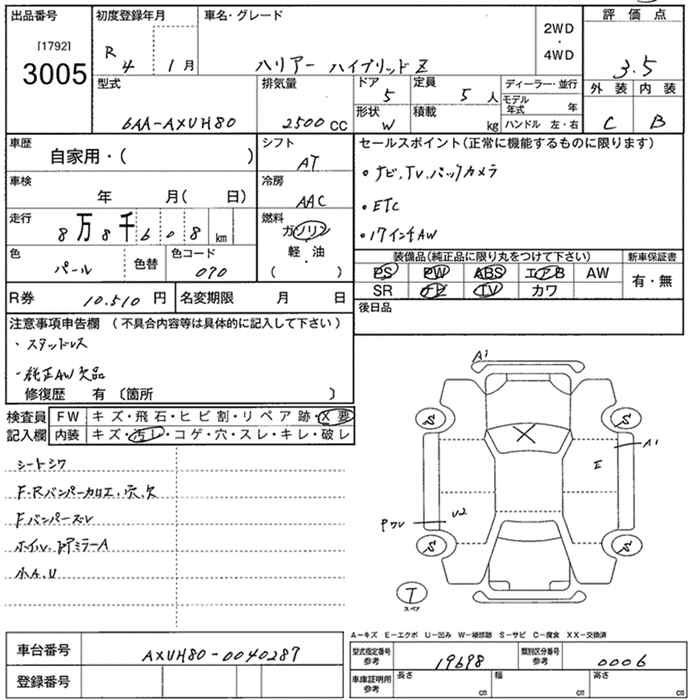 出品番号
[1792]
3005
初度登録年月
R 4 1 月
車名・グレード
ハリアー ハイブリッド Z
2WD
・
4WD
評価点
3.5
外装 内装
C B
型式
6AA-AXUH80
排気量
2500 CC
ドア
5
定員
5 人
形状
W
積載
kg
ディーラー・並行
モデル年式 年
ハンドル 左・右
車歴
自家用・( )
シフト
AT
車検
年 月( 日)
冷房
AAC
走行
8万8千608 km
燃料
ガソリン
軽・油
( )
色
パール
色替
色コード
070
R券 10.510 円
名変期限 月 日
セールスポイント(正常に機能するものに限ります)
・ナビ、TV、バックカメラ
・ETC
・17インチAW
装備品(純正品に限り丸をつけて下さい)
PS PW ABS エアB AW
SR ナビ TV カワ
新車保証書
有・無
後日品
注意事項申告欄 (不具合内容等は具体的に記入して下さい)
・スタッドレス
・純正AW欠品
修復歴 有 〔箇所 〕
検査員記入欄
FW キズ・飛石・ヒビ割・リペア跡・X要
内装 キズ・汚レ・コゲ・穴・スレ・キレ・破レ
シートシワ
F・Rバンパーカロエ、穴、欠
Fバンパーズレ
ホイル、ドアミラーA
小A、U
A1
S
S
A1
E
U2
Pワレ
S
S
T
スペア
A-キズ E-エクボ U-凹み W-補修跡 S-サビ C-腐食 XX-交換済
車台番号 AXUH80-0040287
登録番号
型式指定番号 参考 19698
類別区分番号 参考 0006
車庫証明用 参考
長さ cm
幅 cm
高さ cm